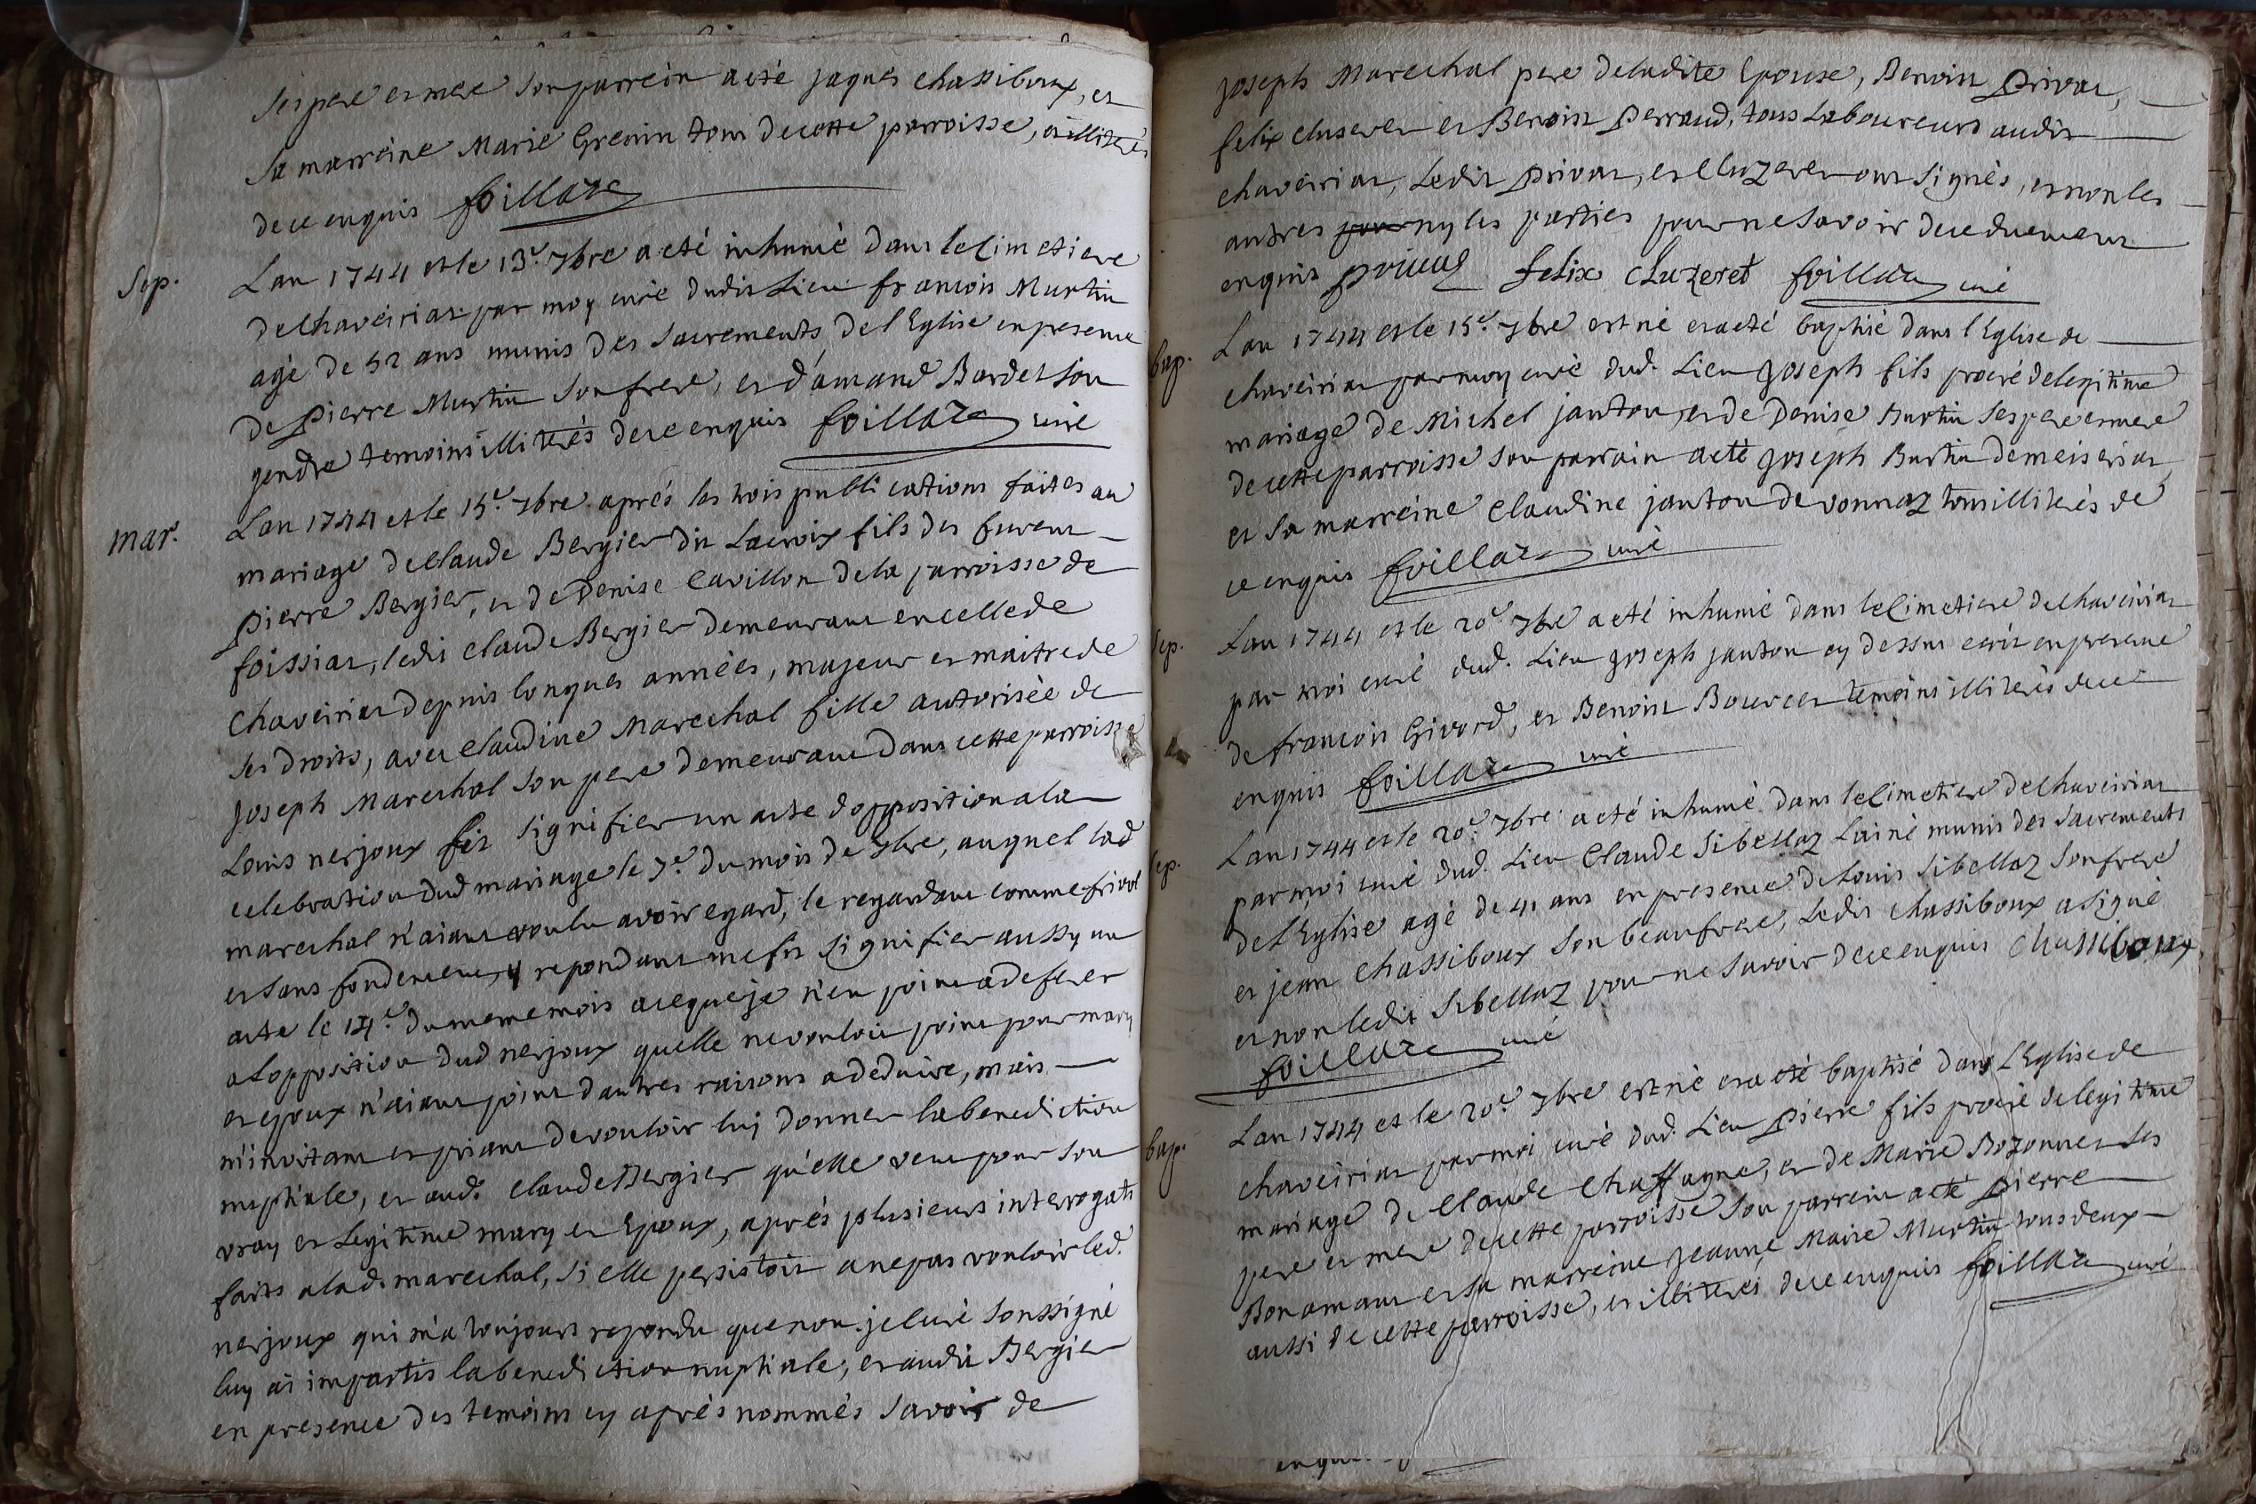 ses pere et mere son parrein a eté jaques chassiboux, et
sa marreine Marie Grenin tous de cette parroisse, et illiterés
de ce enquis foillaz
Sep.
L'an 1744 et le 13e. 7bre a eté inhumé dans le Cimetiere
de Chaveiriat par moy curé dudit Lieu francois Murtin
agé de 52 ans munis des Sacrements de l'Eglise en presence
de Pierre Murtin son frere, et d'amand Bardet son
gendre temoins illiterés de ce enquis foillaz curé
mar.
L'an 1744 et le 15e. 7bre aprés les trois publications faites au
mariage de Claude Bergier dit Lacroix fils des furent
Pierre Bergier, et de Denise Cavillon de la parroisse de
foissiat, ledit Claude Bergier demeurant en celle de
Chaveiriat depuis longues années, majeur et maitre de
ses droits, avec Claudine Marechal fille autorisée de
Joseph Marechal son pere demeurant dans cette parroisse
Louis nerjoux fit signifier un acte d'opposition a la
celebration dud mariage le 7e. du mois de 7bre, auquel lad
marechal n'aiant voulu avoir egard, le regardant comme frivol
et sans fondement, y repondant me fit signifier aussy un
acte le 14e. du meme mois a ce que je n'eu point a deferer
a l'opposition dud nerjoux quelle ne vouloit point pour mary
et epoux n'aiant point d'autres raisons a deduire, mais
m'invitant et priant de vouloir luy donner la benediction
nuptiale, et aud. Claude Bergier qu'elle veut pour son
vray et Legitime mary et Epoux, aprés plusieurs interogats
faits a lad. marechal, si elle persistoit a ne pas vouloir led.
nerjoux qui m'a toujours repondu que non. je curé soussigné
luy ai impartis la benediction nuptiale, et audit Bergier
en presence des temoins cy aprés nommés savoir de
Joseph Marechal pere de ladite Epouse, Benoist Privat,
felix cluseret et Benoist Perraud, tous Laboureurs audit
chaveiriat, Ledit privat, et Cluzeret ont signés, et non les
autres pour ny les parties pour ne savoir de ce duement
enquis privat felix Cluzeret foillaz curé
bap.
L'an 1744 et le 15e. 7bre est né et a eté baptisé dans l'Eglise de
chaveiriat par moy curé dud. Lieu Joseph fils procréé de legitime
mariage de Michel janton, et de Denise Burtin ses pere et mere
de cette parroisse son parrain a eté Joseph Burtin de meiseriat
et sa marreine Claudine janton de vonnaz tous illiterés de
ce enquis foillaz curé
Sep.
L'an 1744 et le 20e. 7bre a eté inhumé dans le Cimetiere de Chaveiriat
par moi curé dud. Lieu Joseph janton cy dessus ecrit en presence
de francois Givord, et Benoist Bourcet temoins illiterés de ce
enquis foillaz curé
Sep.
L'an 1744 et le 20e. 7bre a eté inhumé dans le Cimetiere de Chaveiriat
par moi curé dud. Lieu Claude Sibellaz Lainé munis des Sacrements
de L'Eglise agé de 41 ans en presence de Louis Sibellaz son frere
et jean Chassiboux son beaufrere, Ledit chassiboux a signé
et non ledit Sibellaz pour ne savoir de ce enquis Chassiboux
foillaz curé
bap.
L'an 1744 et le 20e. 7bre est né et a eté baptisé dans l'Eglise de
chaveiriat par moi curé dud. Lieu Pierre fils procréé de legitime
mariage de Claude Chaffagne, et de Marie Bozonnet ses
pere et mere de cette parroisse son parrein a eté Pierre
Bonamant et sa marreine Jeanne Marie Murtin tous deux
aussi de cette parroisse, et illiterés de ce enquis foillaz curé